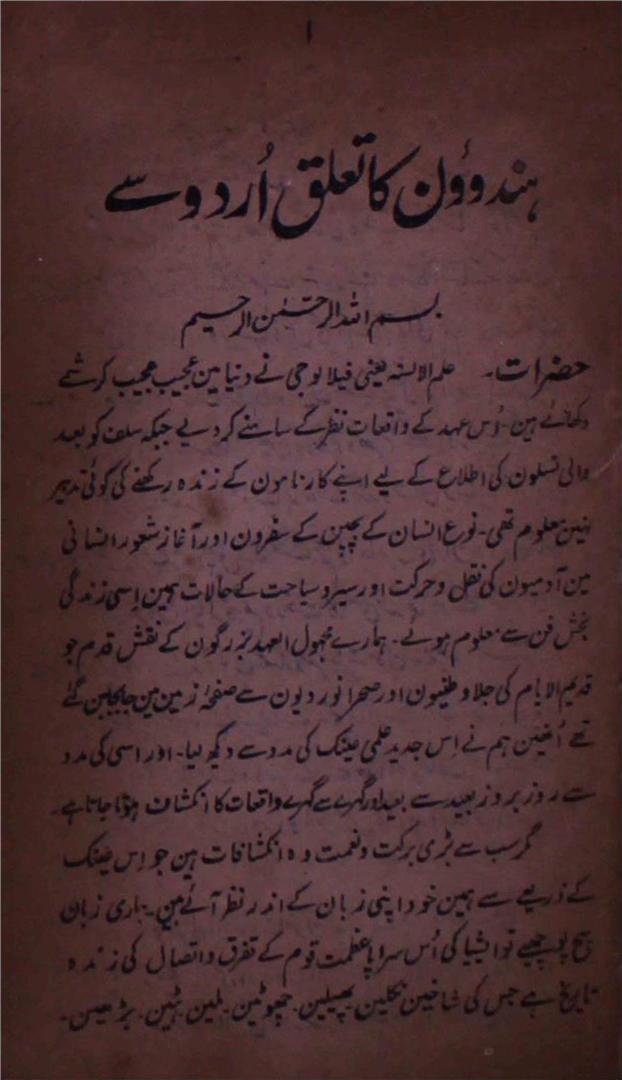 ۱
ہندوؤن کا تعلق اُردو سے
بسم اللہ الرحمٰن الرحیم
حضرات۔ علم الالسنہ یعنی فیلالوجی نے دنیا مین عجیب عجیب کرشمے
دکھائے ہین۔ اُس عہد کے واقعات نظر کے سامنے کر دیے جبکہ سلف کو بعد
والی نسلون کی اطلاع کے لیے اپنے کارنامون کے زندہ رکھنے کی کوئی تدبیر
نہین معلوم تھی۔ نوع انسان کے بچپن کے سفرون اور آغاز شعور انسانی
مین آدمیون کی نقل و حرکت اور سیر و سیاحت کے حالات ہمین اِسی زندگی
بخش فن سے معلوم ہوئے۔ ہمارے مجہول العہد بزرگون کے نقش قدم جو
قدیم الایام کی جلاوطنیون اور صحرانوردیون سے صفحۂ زمین مین جابجا بن گئے
تھے اُنھین ہم نے اِس جدید علمی عینک کی مدد سے دیکھ لیا۔ اور اسی کی مدد
سے روز بروز بعید سے بعید اور گہرے سے گہرے واقعات کا انکشاف ہوتا جاتا ہے۔
مگر سب سے بڑی برکت و نعمت وہ انکشافات ہین جو اِس عینک
کے ذریعے سے ہمین خود اپنی زبان کے اندر نظر آئے ہین۔ ہماری زبان
سچ پوچھیے تو ایشیا کی اُس سراپا عظمت قوم کے تفرق و اتصال کی زندہ
تاریخ ہے جس کی شاخین نکلین۔ پھیلین۔ چھوٹین۔ ملین۔ ہٹین۔ بڑھین۔